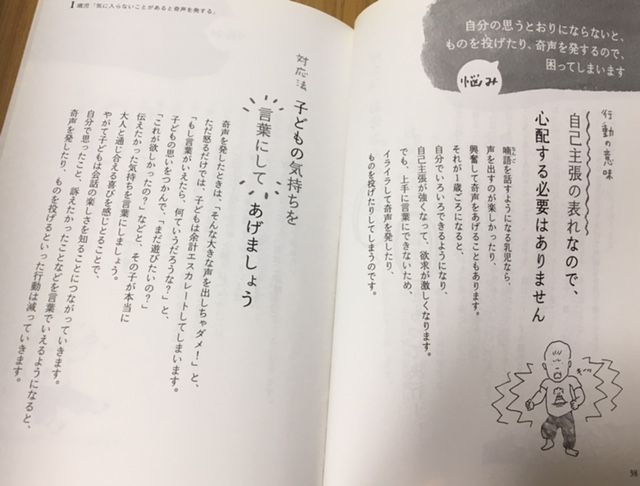 自分の思うとおりにならないと、
ものを投げたり、奇声を発するので、
困ってしまいます
悩み
行動の意味
自己主張の表れなので、
心配する必要はありません
喃語を話すようになる乳児なら、
声を出すのが楽しかったり、
興奮して奇声をあげることもあります。
それが1歳ごろになると、
自分でいろいろできるようになり、
自己主張が強くなって、欲求が激しくなります。
でも、上手に言葉にできないため、
イライラして奇声を発したり、
ものを投げたりしてしまうのです。
1歳児「気に入らないことがあると奇声を発する」
対応法
子どもの気持ちを
言葉にして
あげましょう
奇声を発したときは、「そんな大きな声を出しちゃダメ!」と、
ただ怒るだけでは、子どもは余計エスカレートしてしまいます。
「もし言葉がいえたら、何ていうだろうな?」と、
子どもの思いをつかんで、「まだ遊びたいの?」
「これが欲しかったの?」などと、その子が本当に
伝えたかった気持ちを言葉にしましょう。
大人と通じ合える喜びを感じとることで、
やがて子どもは会話の楽しさを知ることにつながっていきます。
自分で思ったこと、訴えたかったことなどを言葉でいえるようになると、
奇声を発したり、ものを投げるといった行動は減っていきます。